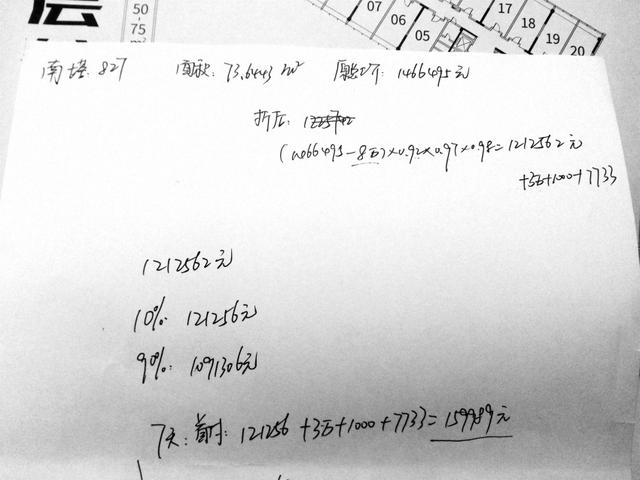 层
50
-
75
m²
07
06
05
17
18
19
20
南塔: 827 面积: 73.6443 m² 原总价: 1466495元
折后:
(1466495-8万)×0.92×0.97×0.98=1212562元
+3万+1000+7733
1212562元
10%: 121256元
90%: 1091306元
7天: 首付: 121256+3万+1000+7733=159989元